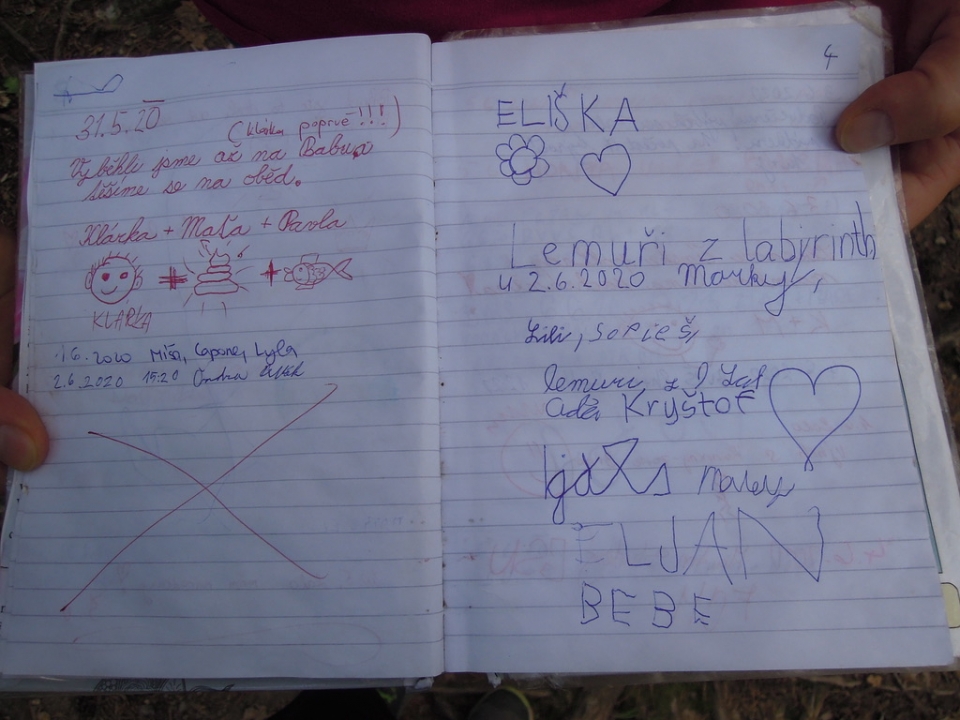 31.5.20
(Klárka poprvé!!!)
Vyběhli jsme až na Babu a
těšíme se na oběd.
Klárka + Maťa + Pavla
KLÁRKA
1 6. 2020 Míša, Capone, Lyla
2.6.2020 15:20 Ondra
4
ELIŠKA
Lemuři z labyrinth
2.6.2020
Lili,
lemuři z
Kryštof
ELJÁN
BEBE